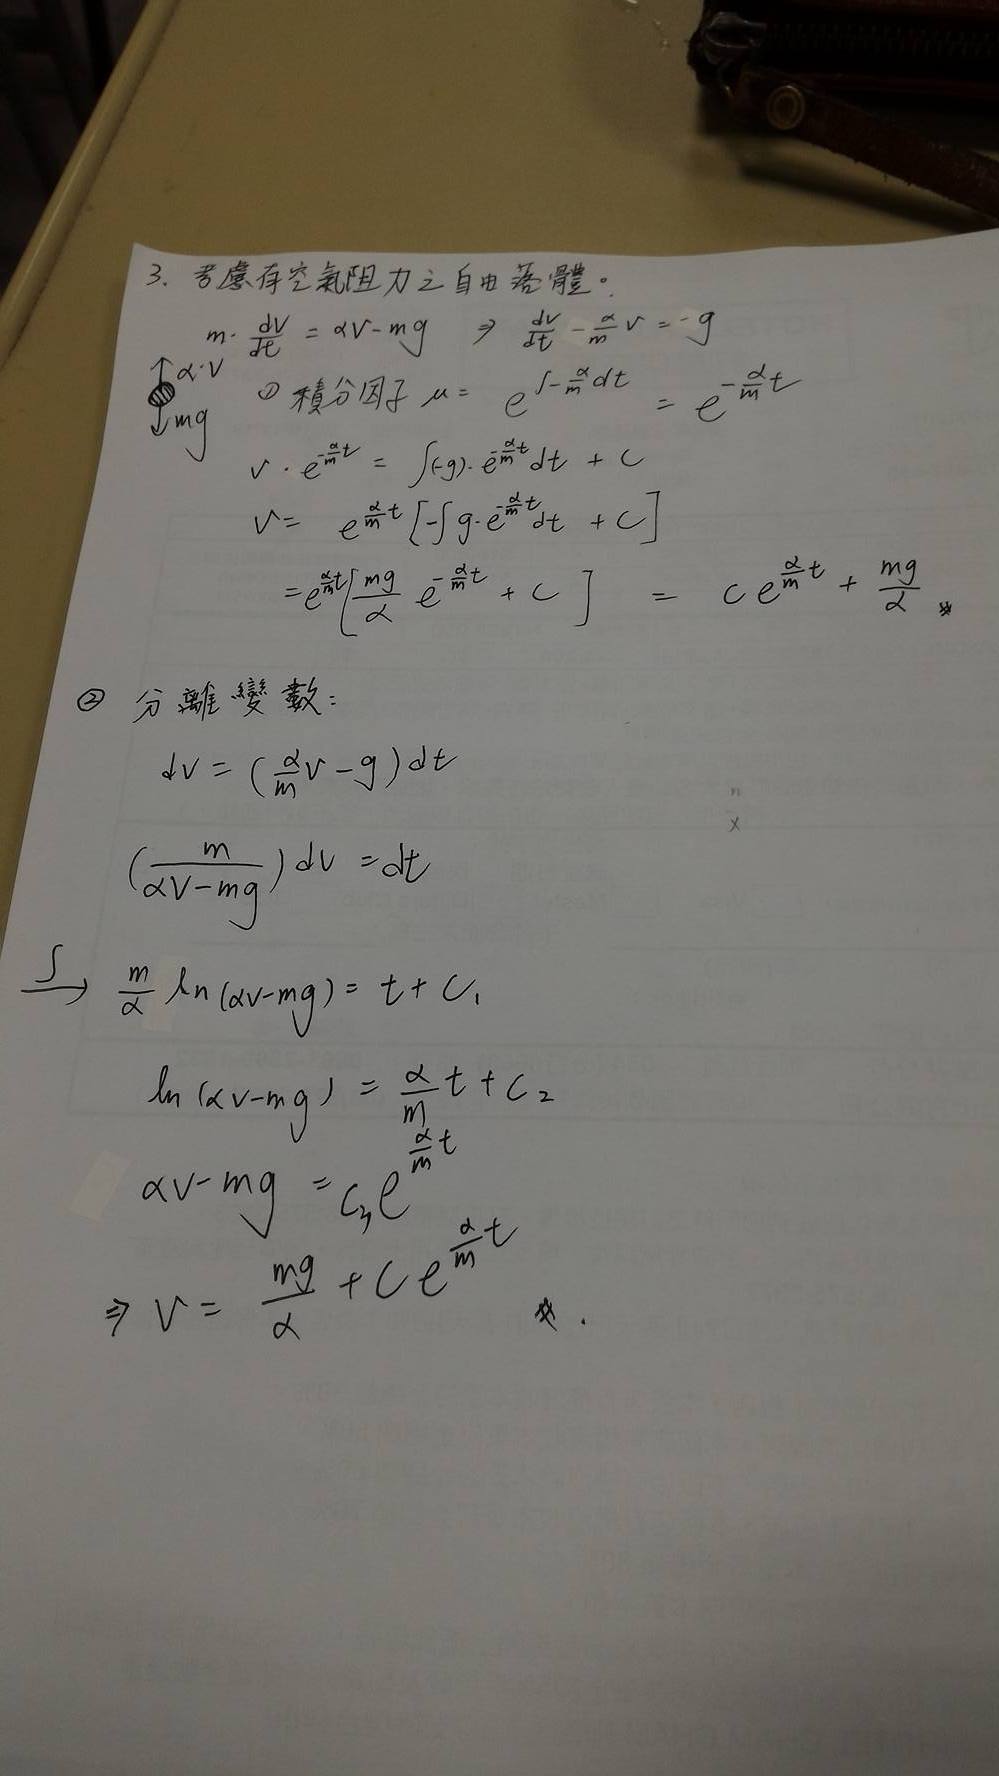 3. 考慮有空氣阻力之自由落體。
m· dv/dt = αv - mg ⇒ dv/dt - α/m v = -g
α·v
mg
① 積分因子 μ = e^{∫-α/m dt} = e^{-α/m t}
v · e^{-α/m t} = ∫(-g)· e^{-α/m t} dt + C
v = e^{α/m t} [-∫g·e^{-α/m t} dt + C]
= e^{α/m t} [mg/α e^{-α/m t} + C] = C e^{α/m t} + mg/α
② 分離變數:
dv = (α/m v - g) dt
(m/(αv-mg)) dv = dt
∫→ m/α ln(αv-mg) = t + C₁
ln(αv-mg) = α/m t + C₂
αv-mg = C₃e^{α/m t}
⇒ v = mg/α + C e^{α/m t}